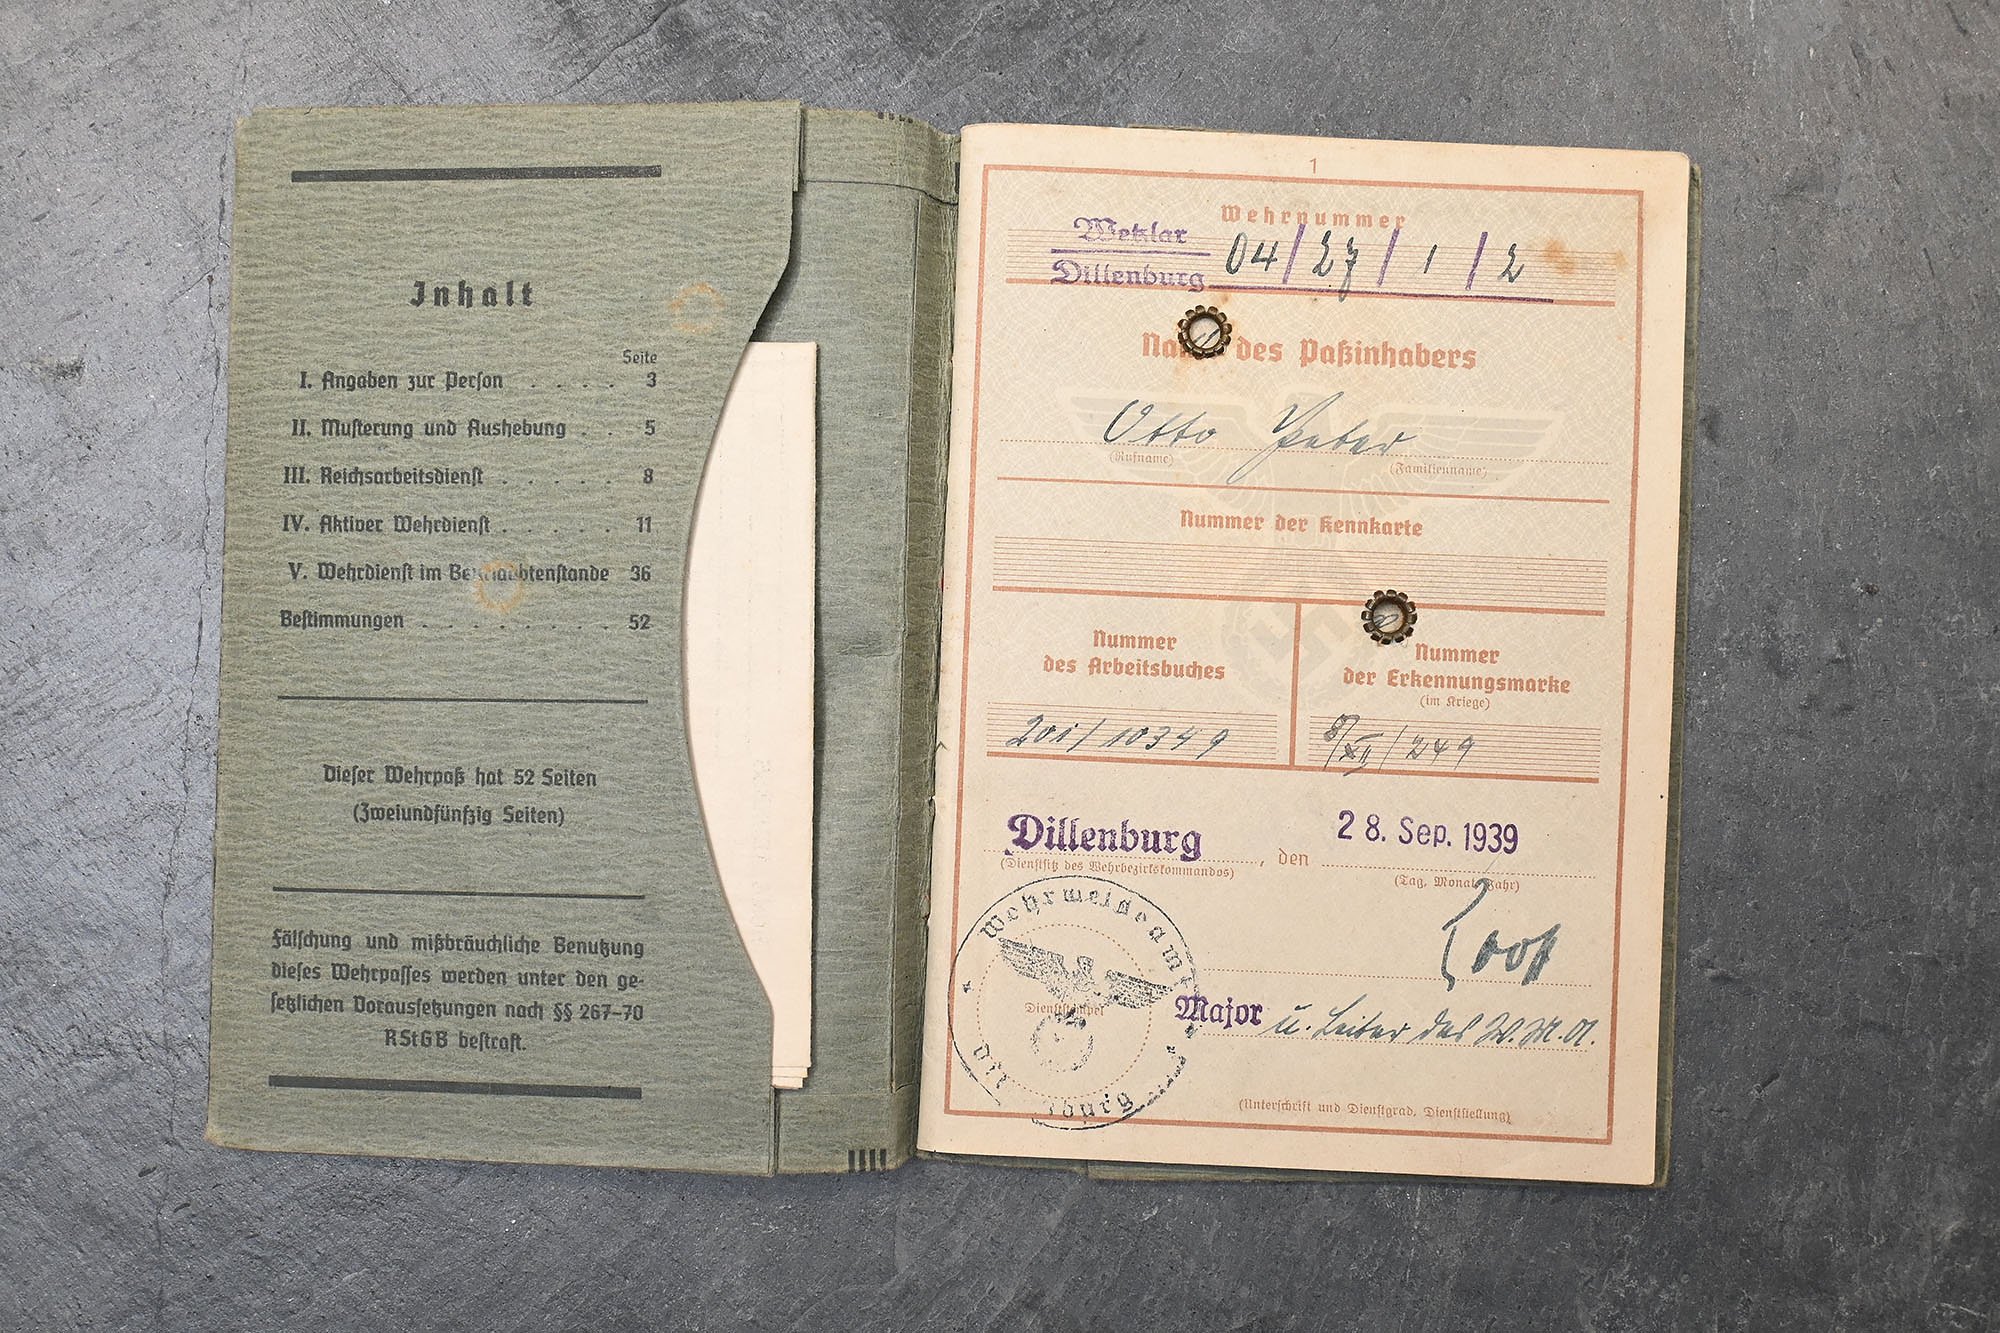 Inhalt
Seite
I. Angaben zur Person . . . . 3
II. Musterung und Aushebung . . 5
III. Reichsarbeitsdienst . . . . . 8
IV. Aktiver Wehrdienst . . . . . 11
V. Wehrdienst im Beurlaubtenstande 36
Bestimmungen . . . . . . . . . 52
Dieser Wehrpaß hat 52 Seiten
(Zweiundfünfzig Seiten)
Fälschung und mißbräuchliche Benutzung
dieses Wehrpasses werden unter den ge-
setzlichen Voraussetzungen nach §§ 267–70
RStGB bestraft.
1
Wehrnummer
Wetzlar
Dillenburg 04/27/1/2
Name des Paßinhabers
Otto Peter
(Rufname) (Familienname)
Nummer der Kennkarte
Nummer
des Arbeitsbuches
201/10349
Nummer
der Erkennungsmarke
(im Kriege)
8/XII/249
Dillenburg, den 28. Sep. 1939
(Dienstsitz des Wehrbezirkskommandos) (Tag, Monat, Jahr)
Wehrmeldeamt
Dienststempel
Dillenburg
Major u. Leiter des W.M.A.
(Unterschrift und Dienstgrad, Dienststellung)